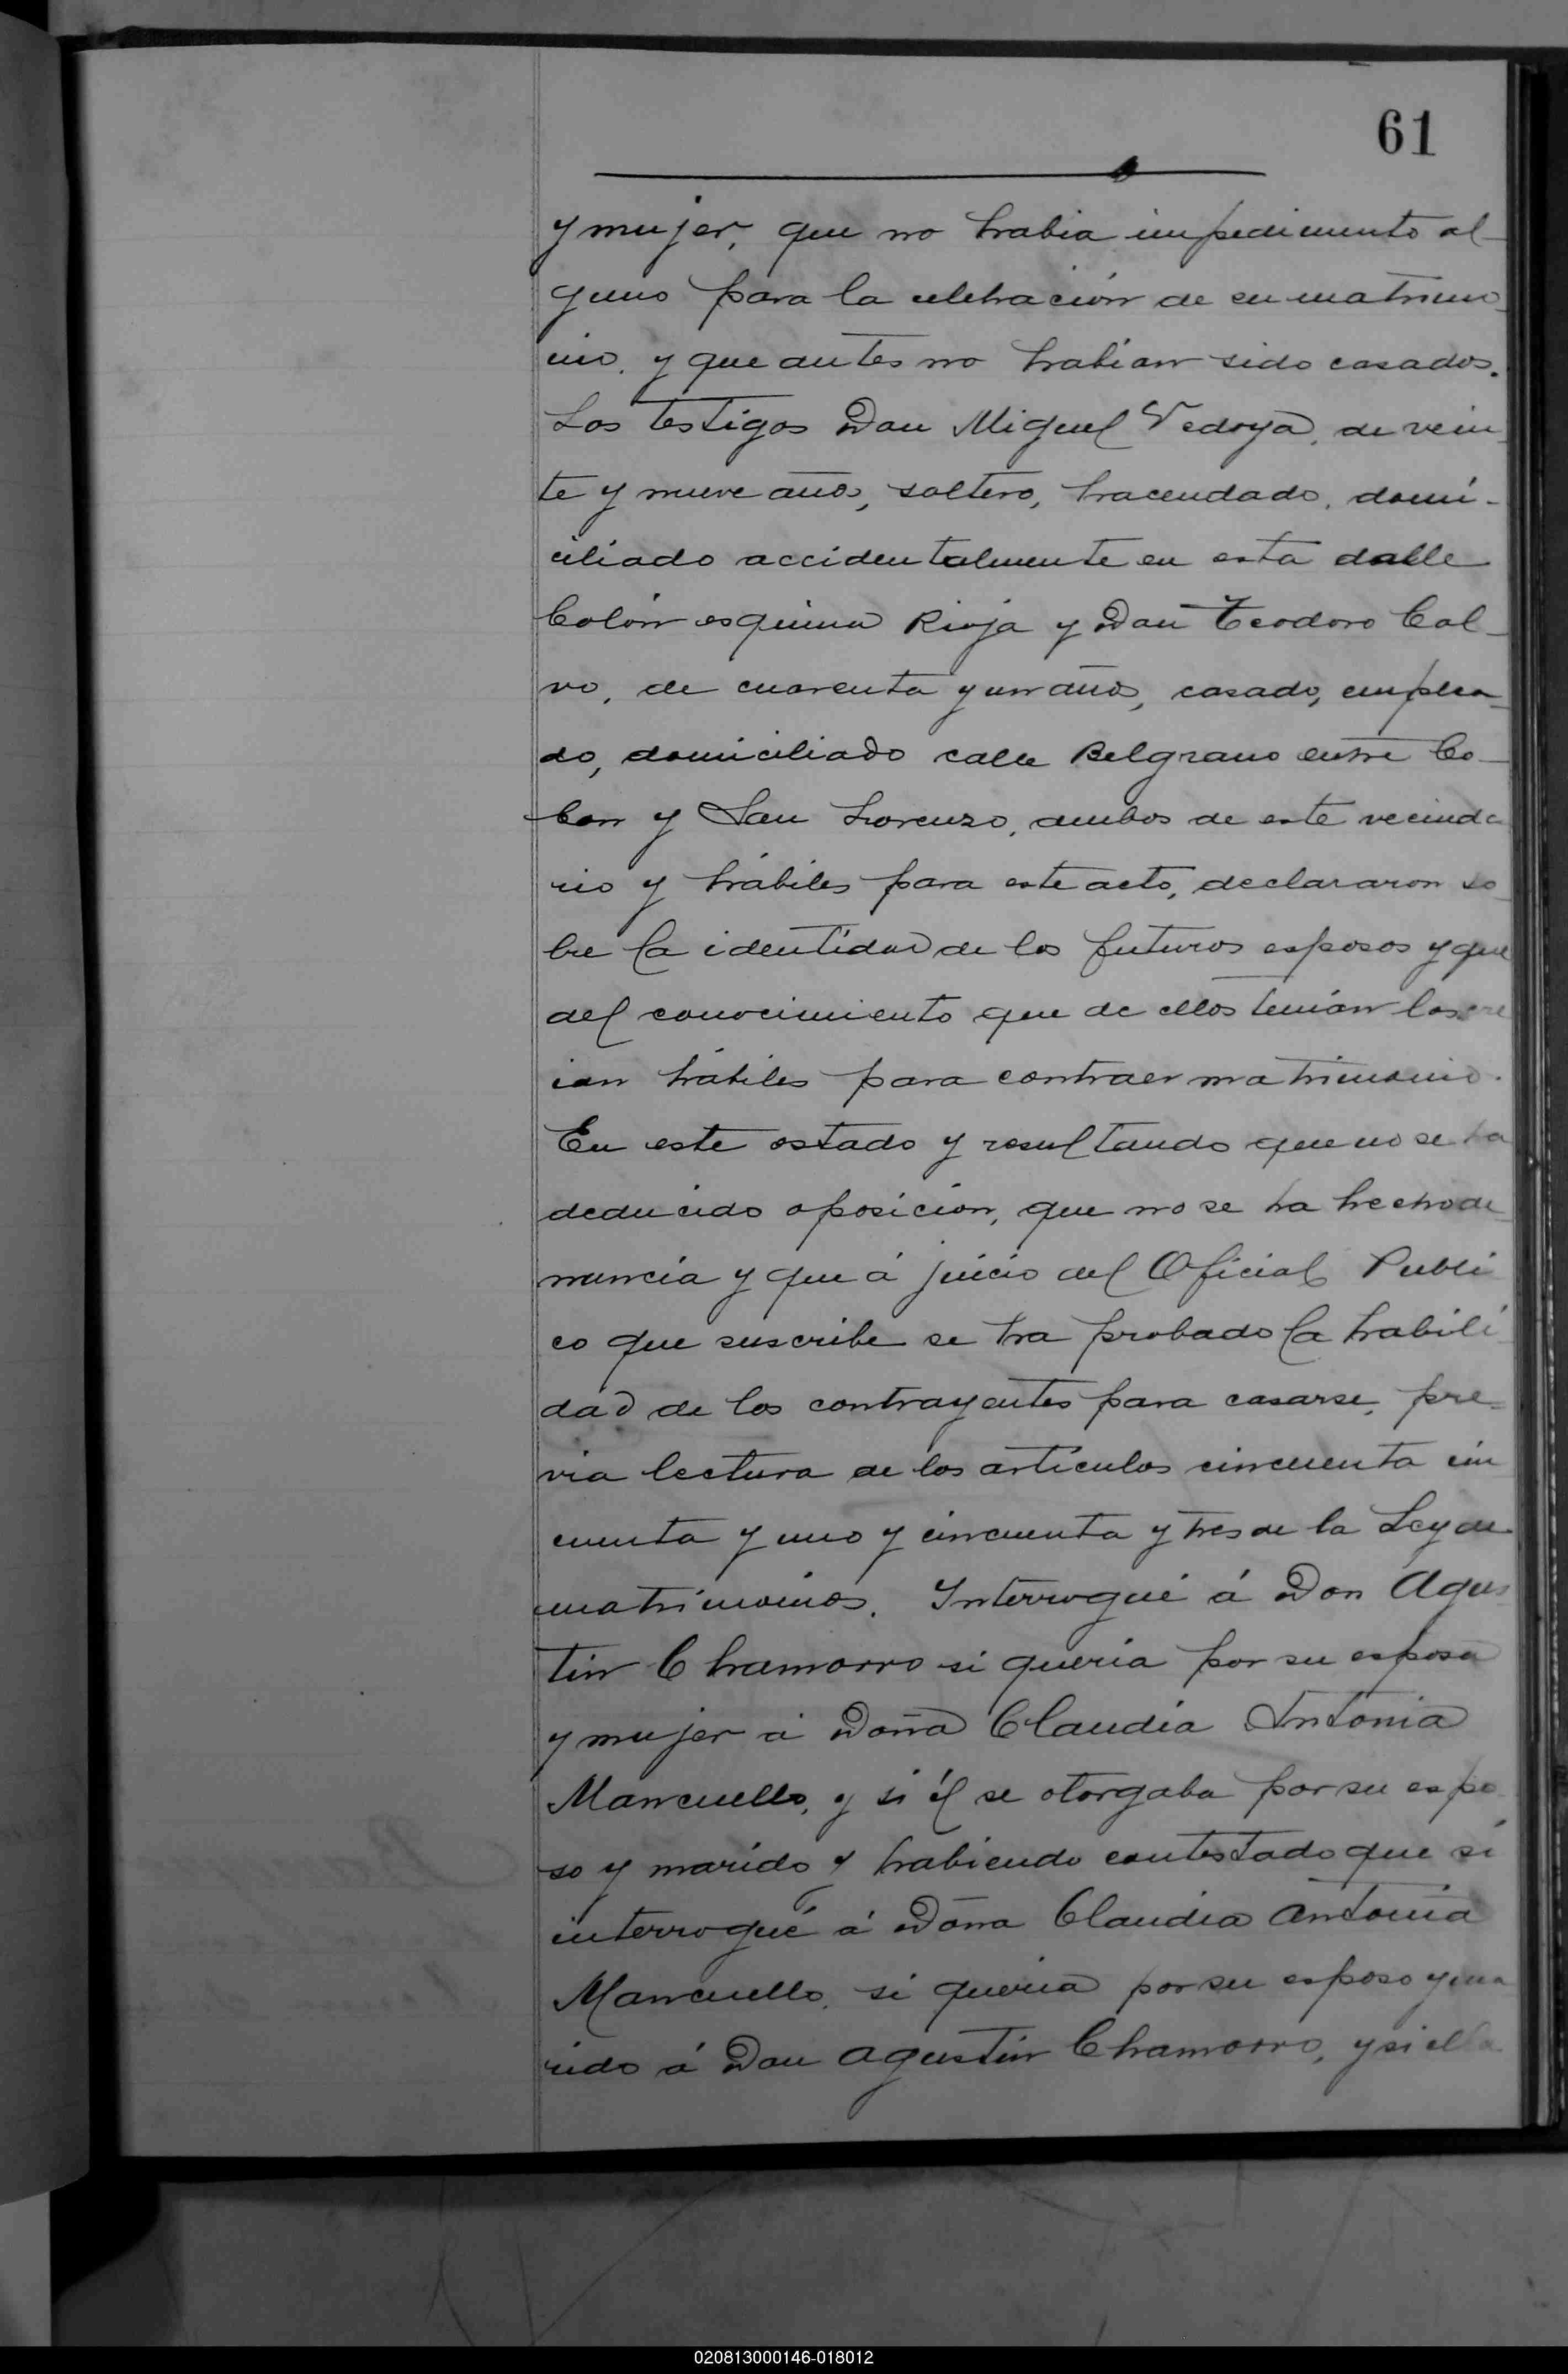 61
y mujer, que no habia impedimento al-
guno para la celebración de su matrimo-
nio, y que antes no habian sido casados.
Los testigos Don Miguel Vedoya, de vein-
te y nueve años, soltero, hacendado, domi-
ciliado accidentalmente en esta calle
Colón esquina Rioja y Don Teodoro Cal-
vo, de cuarenta y un años, casado, emplea-
do, domiciliado calle Belgrano entre Co-
lon y San Lorenzo, ambos de este vecinda
rio y hábiles para este acto, declararon so-
bre la identidad de los futuros esposos y que
del conocimiento que de ellos tenian los cre
ian hábiles para contraer matrimonio.
En este estado y resultando que no se ha
deducido oposición, que no se ha hecho de-
nuncia y que á juicio del Oficial Públi
co que suscribe se ha probado la habili
dad de los contrayentes para casarse, pre-
via lectura de los artículos cincuenta cin
cuenta y uno y cincuenta y tres de la Ley de
matrimonios. Interrogué á Don Agus
tin Chamorro si queria por su esposa
y mujer á Doña Claudia Antonia
Mancuello, y si él se otorgaba por su espo-
so y marido y habiendo contestado que sí
interrogué á Doña Claudia Antonia
Mancuello, si queria por su esposo y ma
rido á Don Agustin Chamorro, y si ella
020813000146-018012